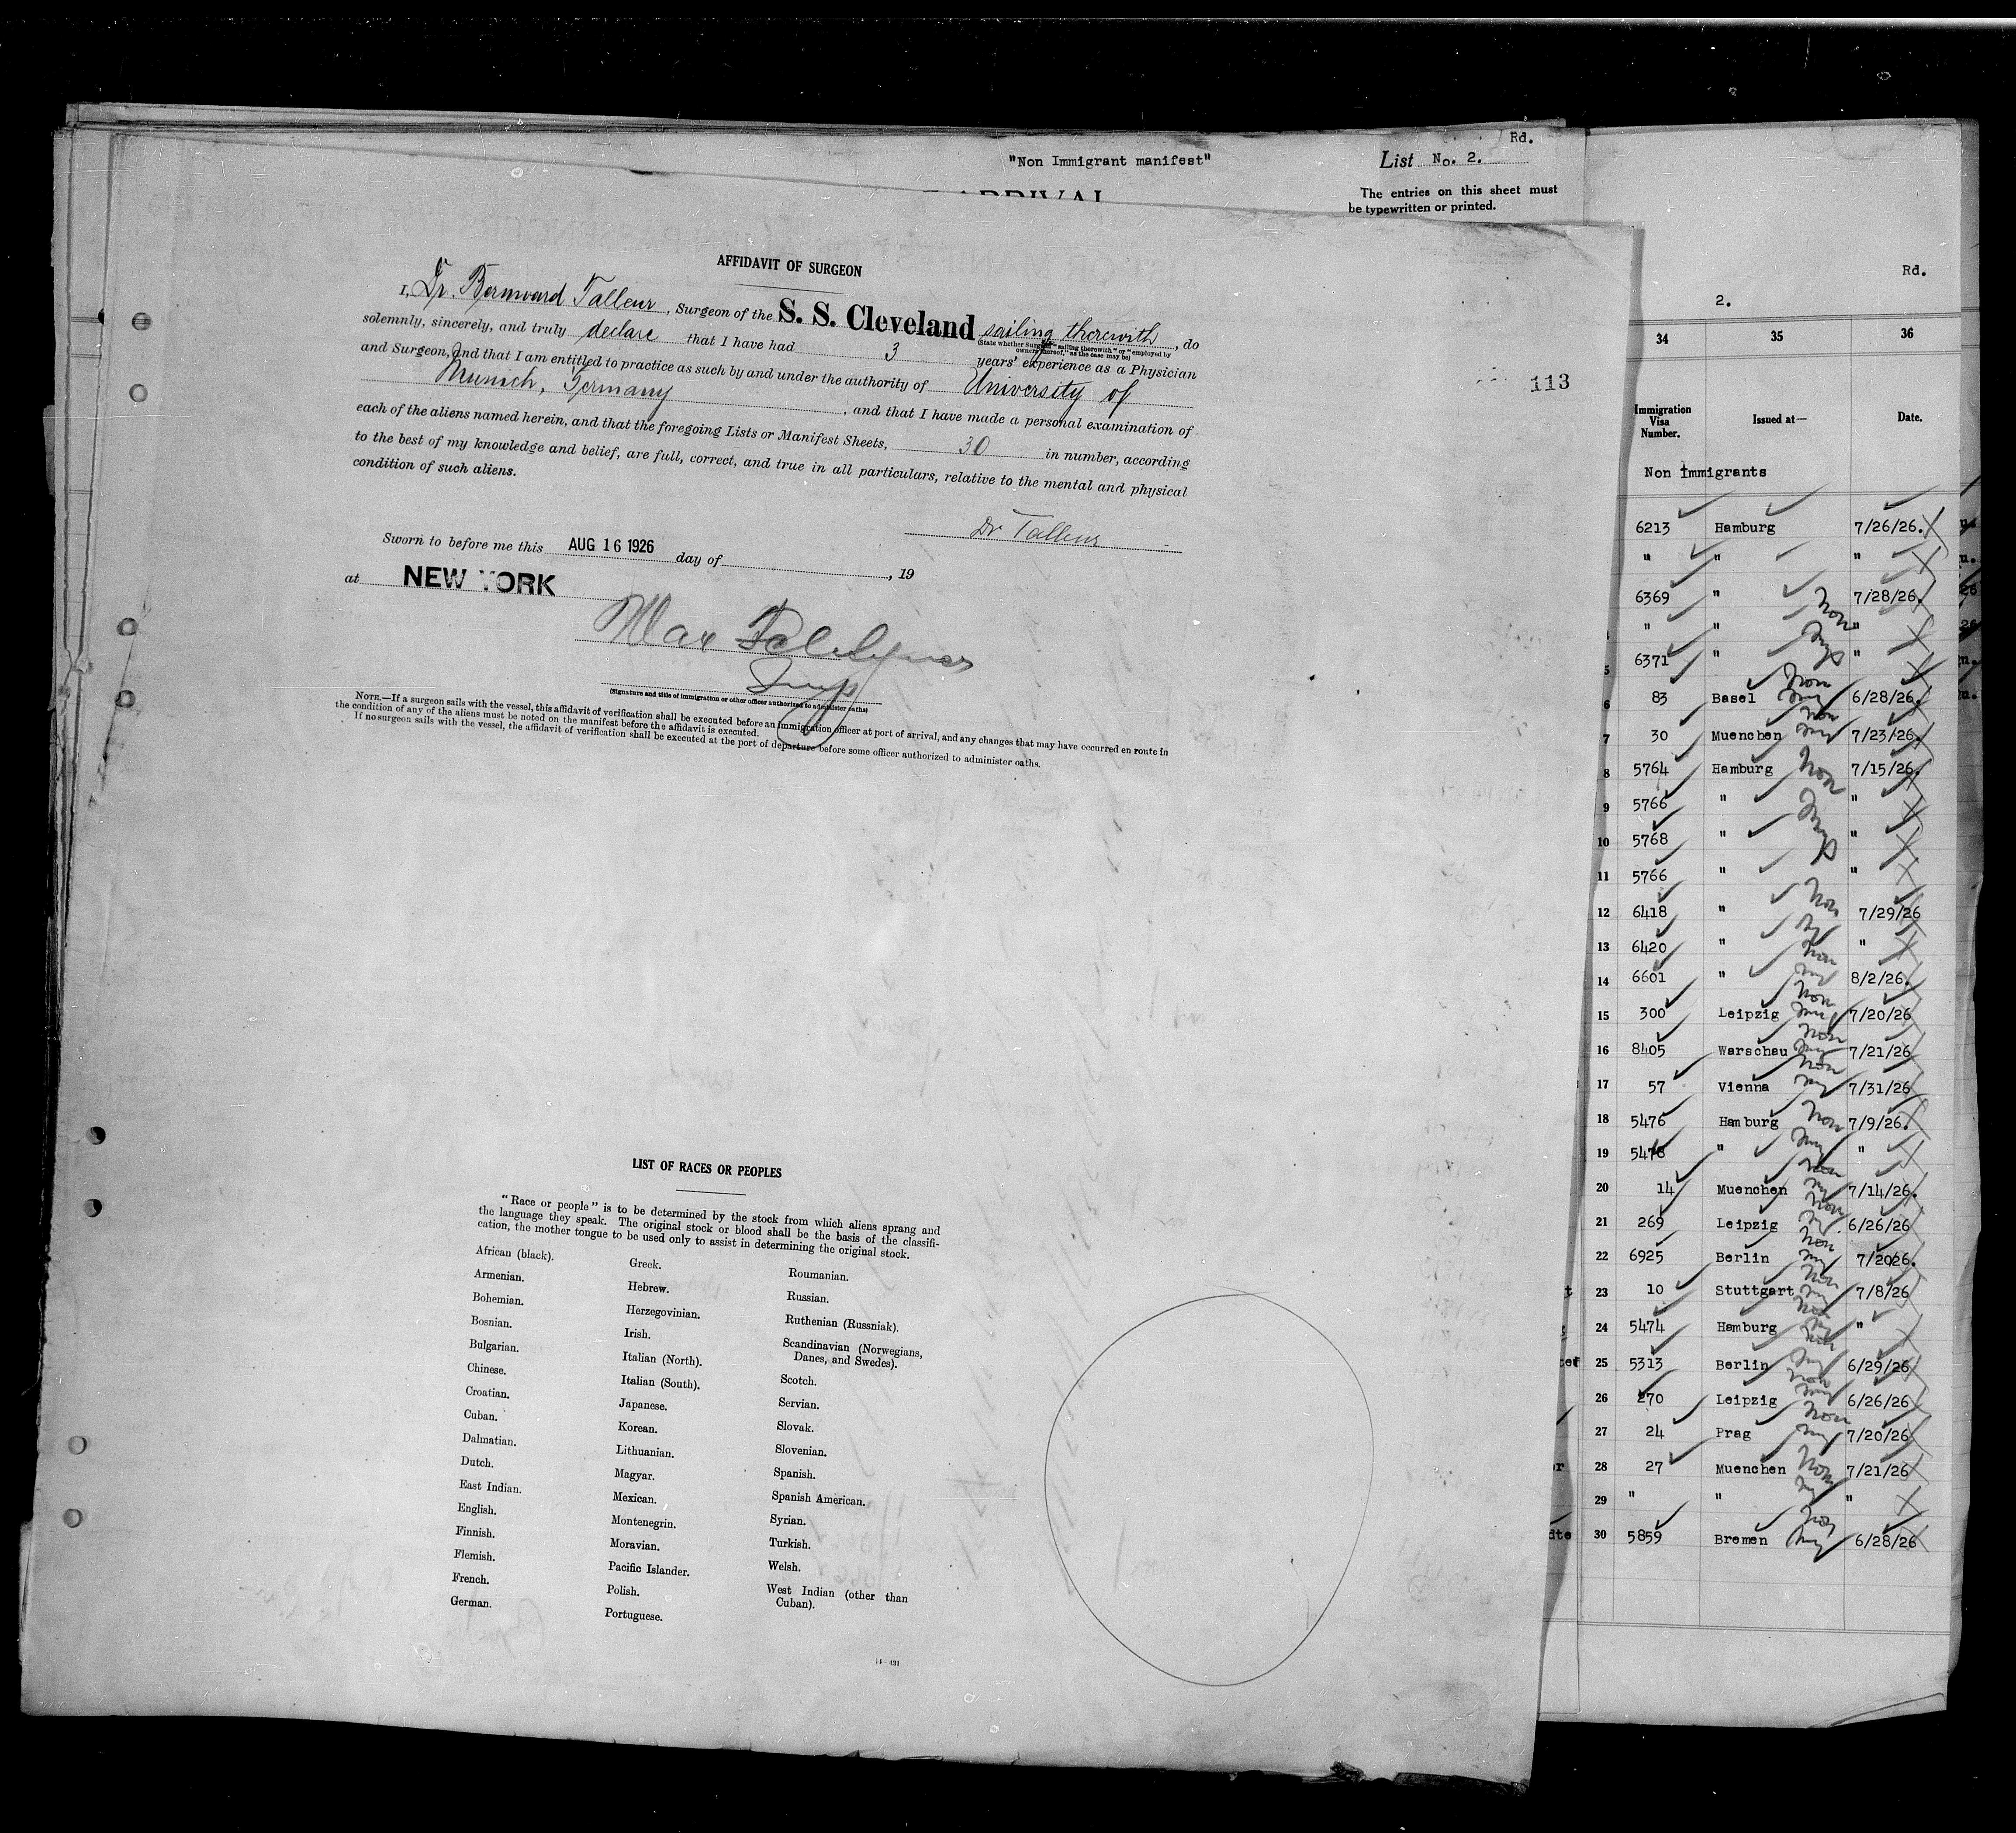 Rd.
"Non Immigrant manifest"
List No. 2.
The entries on this sheet must
be typewritten or printed.
113
AFFIDAVIT OF SURGEON
I, Dr. Bernward Talleur, Surgeon of the S. S. Cleveland sailing therewith, do
(State whether Surgeon "sailing therewith" or "employed by
owners thereof," as the case may be)
solemnly, sincerely, and truly declare that I have had 3 years' experience as a Physician
and Surgeon, and that I am entitled to practice as such by and under the authority of University of
Munich, Germany, and that I have made a personal examination of
each of the aliens named herein, and that the foregoing Lists or Manifest Sheets, 30 in number, according
to the best of my knowledge and belief, are full, correct, and true in all particulars, relative to the mental and physical
condition of such aliens.
Dr Talleur
Sworn to before me this AUG 16 1926 day of , 19
at NEW YORK
Max
Insp
(Signature and title of immigration or other officer authorized to administer oaths)
NOTE.—If a surgeon sails with the vessel, this affidavit of verification shall be executed before an immigration officer at port of arrival, and any changes that may have occurred en route in
the condition of any of the aliens must be noted on the manifest before the affidavit is executed.
If no surgeon sails with the vessel, the affidavit of verification shall be executed at the port of departure before some officer authorized to administer oaths.
LIST OF RACES OR PEOPLES
"Race or people" is to be determined by the stock from which aliens sprang and
the language they speak. The original stock or blood shall be the basis of the classifi-
cation, the mother tongue to be used only to assist in determining the original stock.
African (black).
Armenian.
Bohemian.
Bosnian.
Bulgarian.
Chinese.
Croatian.
Cuban.
Dalmatian.
Dutch.
East Indian.
English.
Finnish.
Flemish.
French.
German.
Greek.
Hebrew.
Herzegovinian.
Irish.
Italian (North).
Italian (South).
Japanese.
Korean.
Lithuanian.
Magyar.
Mexican.
Montenegrin.
Moravian.
Pacific Islander.
Polish.
Portuguese.
Roumanian.
Russian.
Ruthenian (Russniak).
Scandinavian (Norwegians,
Danes, and Swedes).
Scotch.
Servian.
Slovak.
Slovenian.
Spanish.
Spanish American.
Syrian.
Turkish.
Welsh.
West Indian (other than
Cuban).
14—431
Rd.
2.
34 35 36
Immigration
Visa
Number.
Issued at—
Date.
Non Immigrants
6213 Hamburg 7/26/26.
" " "
6369 " 7/28/26.
" " "
5 6371 " "
6 83 Basel 6/28/26.
7 30 Muenchen 7/23/26.
8 5764 Hamburg 7/15/26.
9 5766 " "
10 5768 " "
11 5766 " "
12 6418 " 7/29/26
13 6420 " "
14 6601 " 8/2/26.
15 300 Leipzig 7/20/26
16 8405 Warschau 7/21/26
17 57 Vienna 7/31/26
18 5476 Hamburg 7/9/26.
19 5478 " "
20 14 Muenchen 7/14/26.
21 269 Leipzig 6/26/26
22 6925 Berlin 7/2026.
23 10 Stuttgart 7/8/26
24 5474 Hamburg "
25 5313 Berlin 6/29/26
26 270 Leipzig 6/26/26
27 24 Prag 7/20/26
28 27 Muenchen 7/21/26
29 " " "
30 5859 Bremen 6/28/26